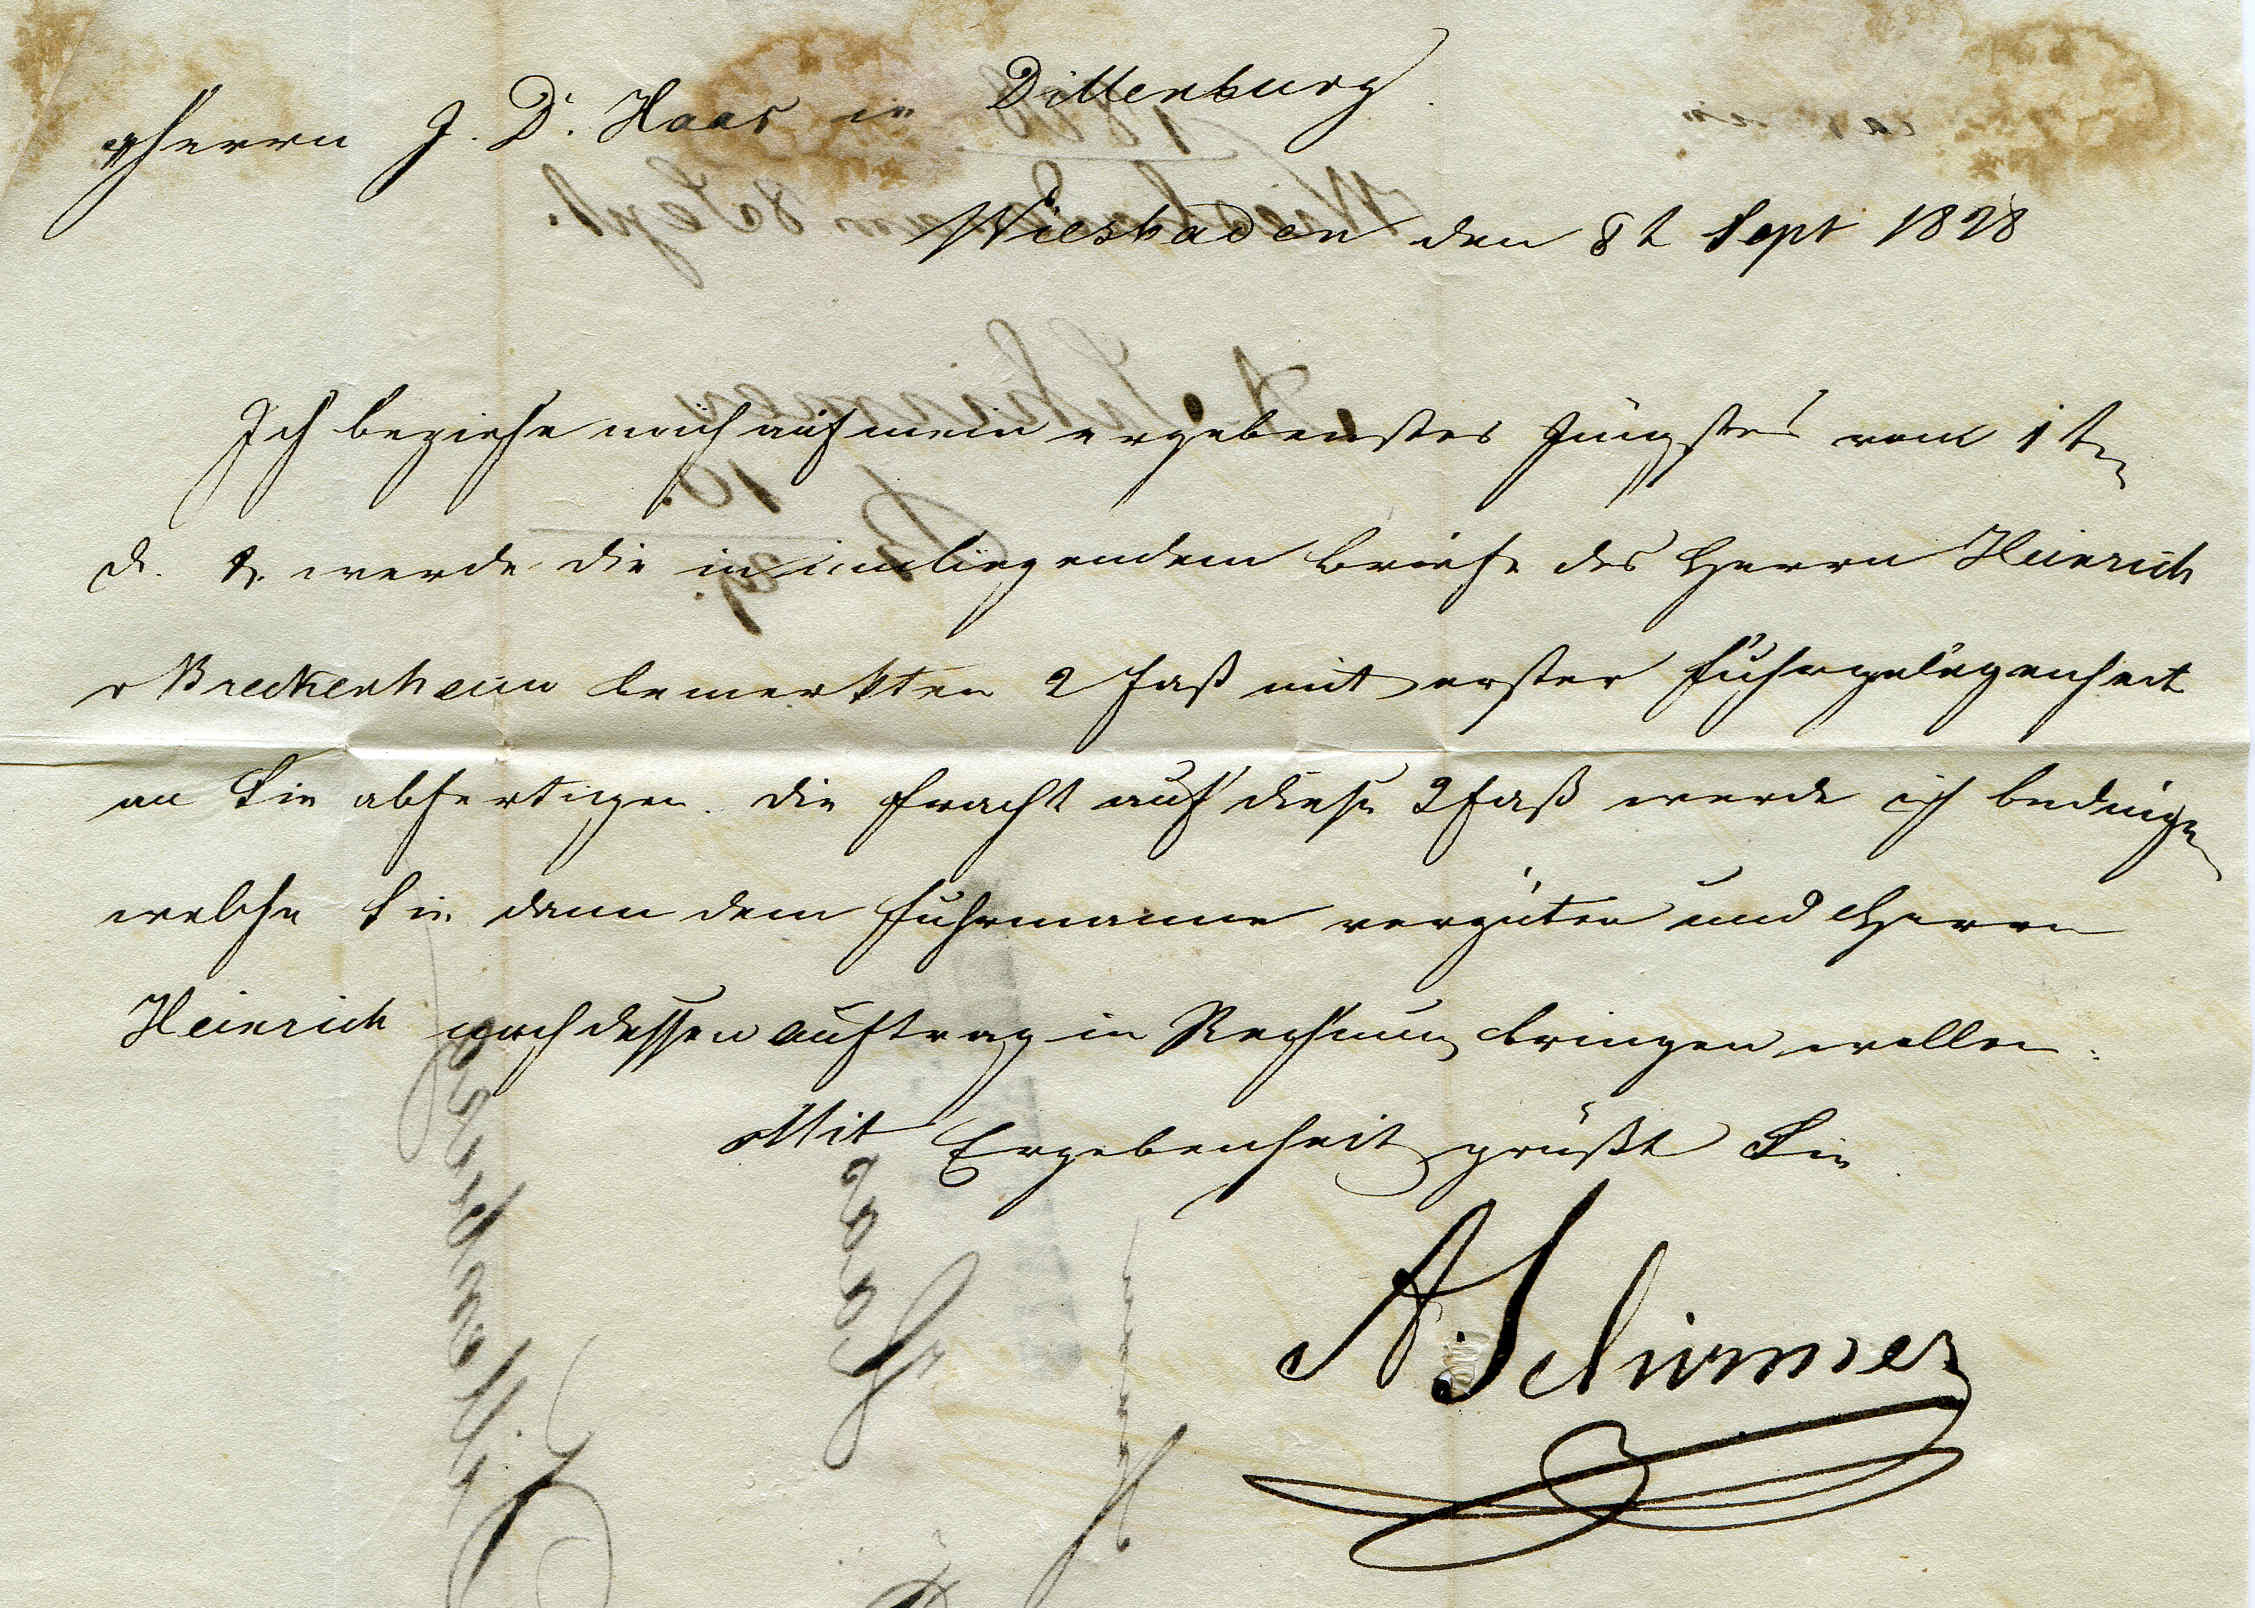 Herrn J. D. Haas in Dillenburg.
Wiesbaden den 8t Sept 1828
Ich beziehe mich auf mein ergebenstes Jüngstes vom 1ten
d. & werde die in einliegendem Briefe des Herrn Heinrich
v Breckenheim bemerkten 2 Faß mit erster Fuhrgelegenheit
an Sie abfertigen. Die Fracht auf diese 2 Faß werde ich bedingen
welche Sie dann dem Fuhrmann vergüten und Herrn
Heinrich nach dessen Auftrag in Rechnung bringen wollen.
Mit Ergebenheit grüßt Sie
A. Schirmer